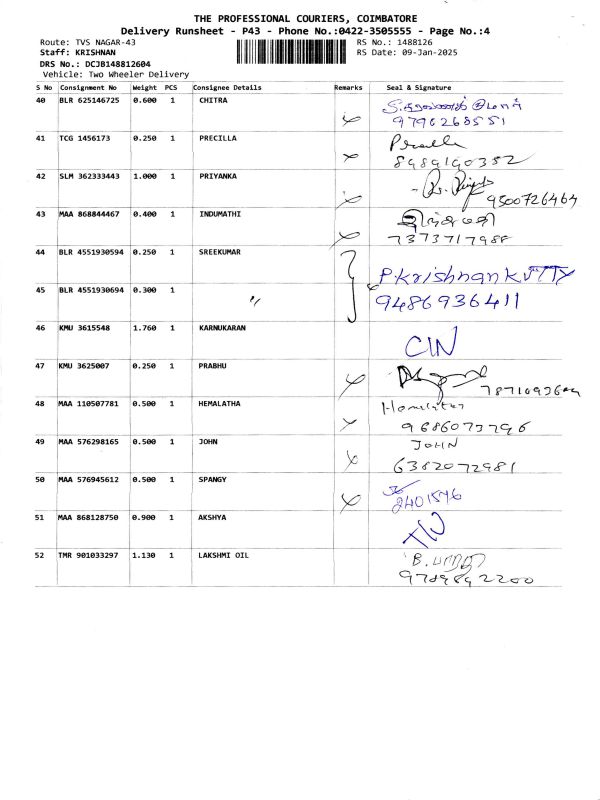 THE PROFESSIONAL COURIERS, COIMBATORE
Delivery Runsheet - P43 - Phone No.:0422-3505555 - Page No.:4
Route: TVS NAGAR-43 RS No.: 1488126
Staff: KRISHNAN RS Date: 09-Jan-2025
DRS No.: DCJB148812604
Vehicle: Two Wheeler Delivery
S No Consignment No Weight PCS Consignee Details Remarks Seal & Signature
40 BLR 625146725 0.600 1 CHITRA
9790268551
41 TCG 1456173 0.250 1 PRECILLA Precilla
8989190352
42 SLM 362333443 1.000 1 PRIYANKA
9500726464
43 MAA 868844467 0.400 1 INDUMATHI இந்துமதி
7373717988
44 BLR 4551930594 0.250 1 SREEKUMAR
P.Krishnan
45 BLR 4551930694 0.300 1 〃 9486936411
46 KMU 3615548 1.760 1 KARNUKARAN
CIN
47 KMU 3625007 0.250 1 PRABHU
48 MAA 110507781 0.500 1 HEMALATHA Hemalatha
9686073796
49 MAA 576298165 0.500 1 JOHN JOHN
6382072981
50 MAA 576945612 0.500 1 SPANGY
2401596
51 MAA 868128750 0.900 1 AKSHYA
52 TMR 901033297 1.130 1 LAKSHMI OIL
9789892200